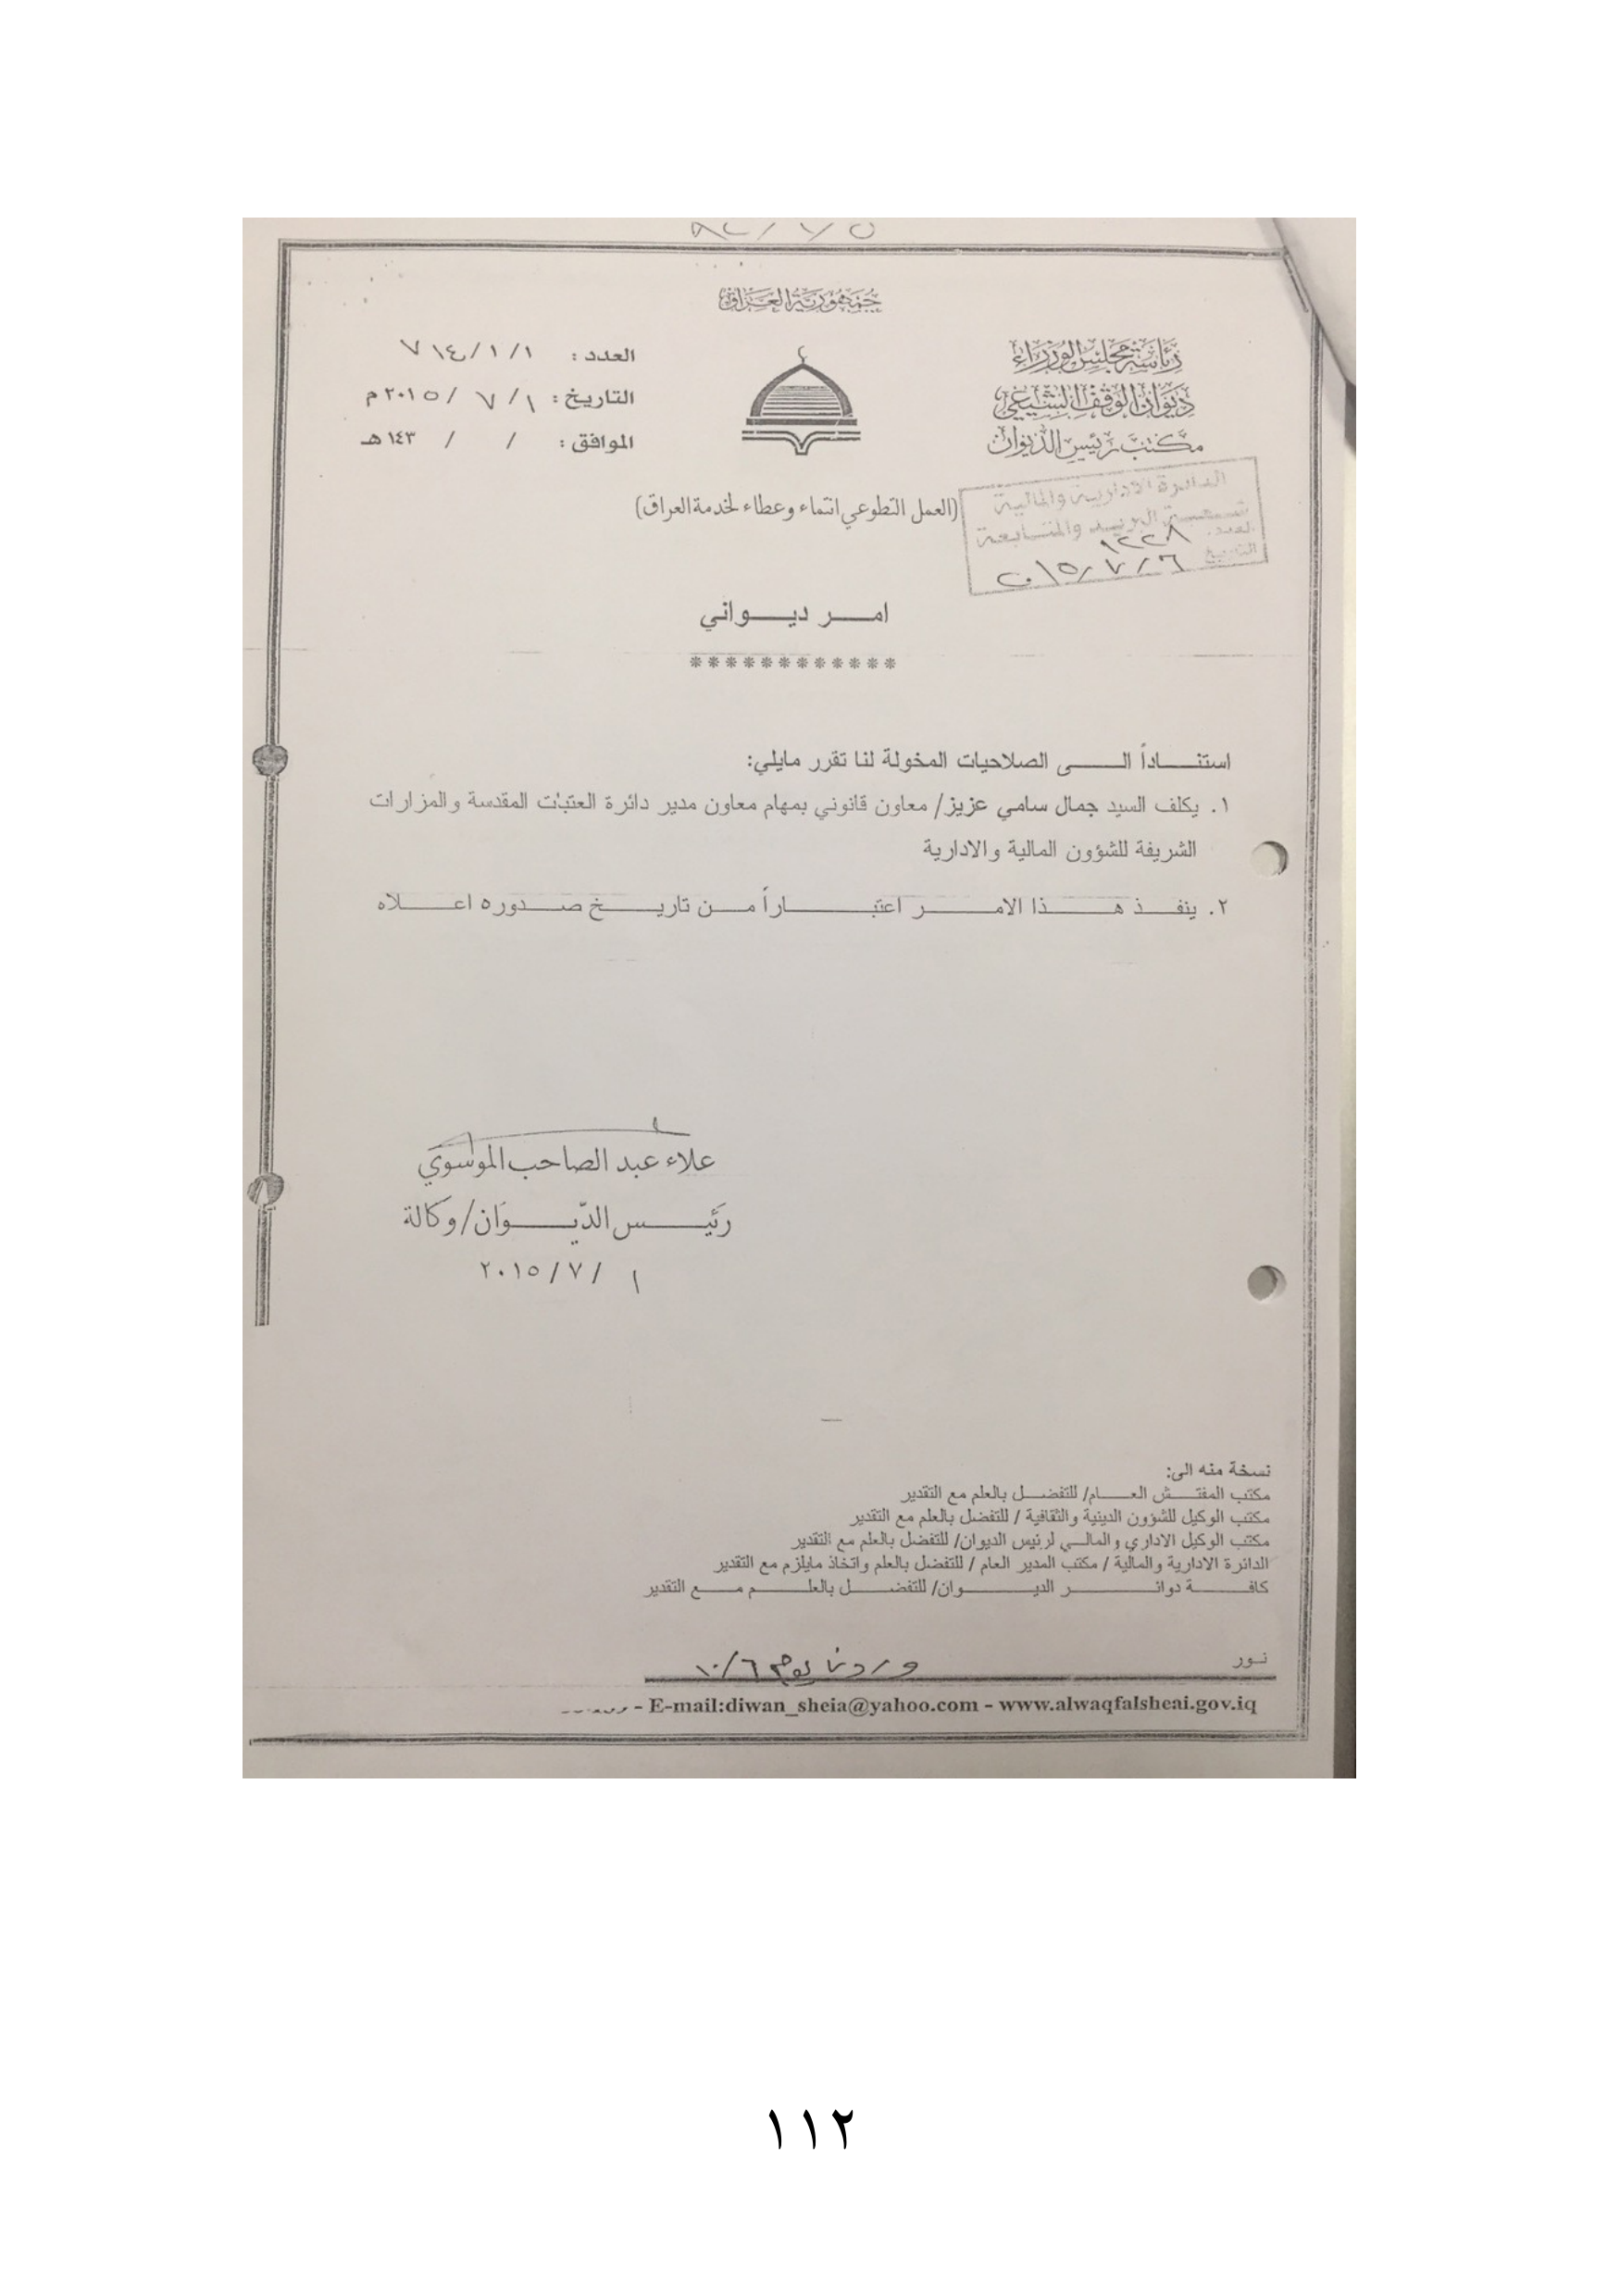 جمهورية العراق
رئاسة مجلس الوزراء
ديوان الوقف الشيعي
مكتب رئيس الديوان
العدد : ١/١/
التاريخ : ١/ ٧ /٢٠١٥م
الموافق : / / ١٤٣هـ
(العمل التطوعي انتماء وعطاء لخدمة العراق)
الدائرة الادارية والمالية
شعبة البريد والمتابعة
العدد ١٢٢٨
التاريخ ٢٠١٥/٧/٦
امـــر ديـــواني
************
استنـــاداً الـــى الصلاحيات المخولة لنا تقرر مايلي:
١. يكلف السيد جمال سامي عزيز/ معاون قانوني بمهام معاون مدير دائرة العتبات المقدسة والمزارات
الشريفة للشؤون المالية والادارية
٢. ينفـــذ هـــذا الامـــر اعتبـــاراً مـــن تاريـــخ صـــدوره اعـــلاه
علاء عبد الصاحب الموسوي
رئيـــس الديـــوان/وكالة
١ /٢٠١٥/٧
نسخة منه الى:
مكتب المفتـــش العـــام/ للتفضـــل بالعلم مع التقدير
مكتب الوكيل للشؤون الدينية والثقافية / للتفضل بالعلم مع التقدير
مكتب الوكيل الاداري والمالـــي لرئيس الديوان/ للتفضل بالعلم مع التقدير
الدائرة الادارية والمالية / مكتب المدير العام / للتفضل بالعلم واتخاذ مايلزم مع التقدير
كافـــة دوائـــر الديـــوان/ للتفضـــل بالعلـــم مـــع التقدير
نـور
وردنا يوم ١٠/٦
E-mail:diwan_sheia@yahoo.com - www.alwaqfalsheai.gov.iq
١١٢